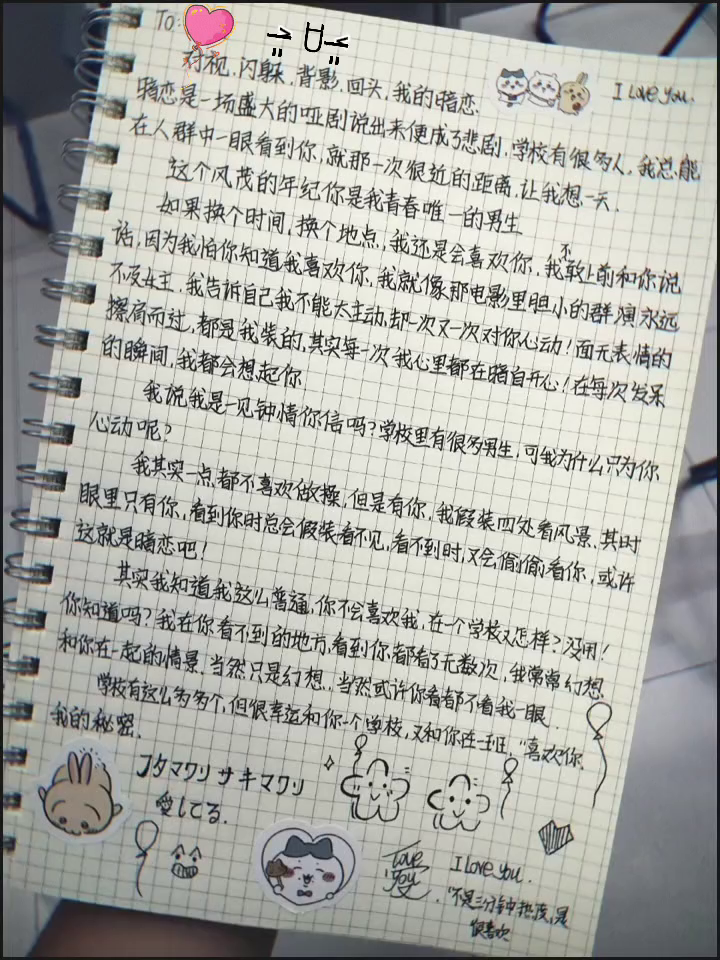 To:
对视.闪躲.背影.回头.我的暗恋.
I Love you.
暗恋是一场盛大的哑剧说出来便成了悲剧.学校有很多人,我总能
在人群中一眼看到你,就那一次很近的距离.让我想一天.
这个风茂的年纪你是我青春唯一的男生
如果换个时间,换个地点,我还是会喜欢你,我不敢上前和你说
话,因为我怕你知道我喜欢你,我就像那电影里胆小的群演永远
不及女主.我告诉自己我不能太主动.却一次又一次对你心动!面无表情的
擦肩而过,都是我装的,其实每一次我心里都在暗自开心!在每次发呆
的瞬间,我都会想起你
我说我是一见钟情你信吗?学校里有很多男生,可我为什么只为你
心动呢?
我其实一点都不喜欢做操,但是有你,我假装四处看风景.其时
眼里只有你,看到你时总会假装看不见,看不到时,又会偷偷看你,或许
这就是暗恋吧!
其实我知道我这么普通,你不会喜欢我,在一个学校又怎样?没用!
你知道吗?我在你看不到的地方,看到你都看了无数次,我常常幻想
和你在一起的情景.当然只是幻想..当然或许你看都不看我一眼.
学校有这么多多个,但很幸运和你一个学校,又和你在一班,"喜欢你.
我的秘密.
コタマワリサキマワリ
愛してる.
Love
you
爱
I Love you.
"不是三分钟热度,是
很喜欢